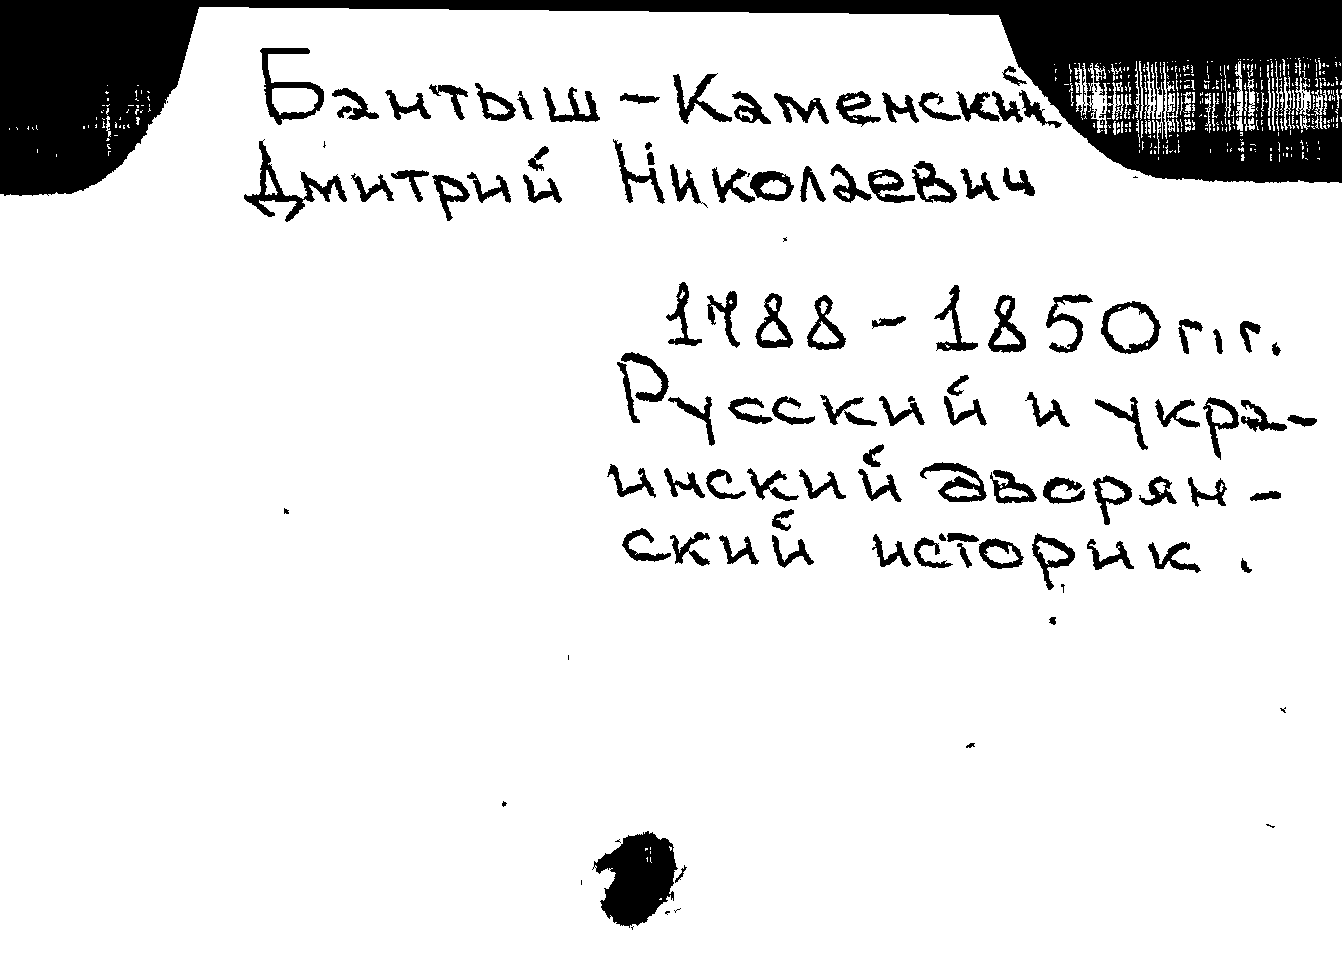 Бантыш-Каменский
Дмитрий Николаевич
1788-1850 г.г.
Русский и укра-
инский дворян-
ский историк.